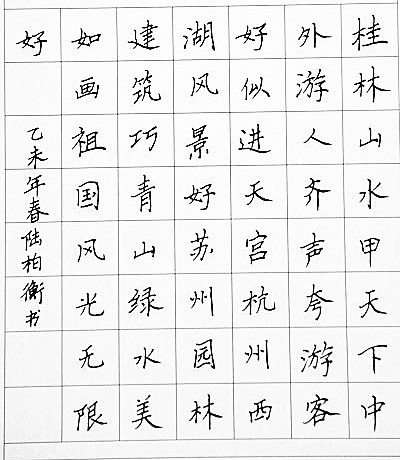 桂林山水甲天下中
外游人齐声夸游客
好似进天宫杭州西
湖风景好苏州园林
建筑巧青山绿水美
如画祖国风光无限
好
乙未年春陆柏衡书